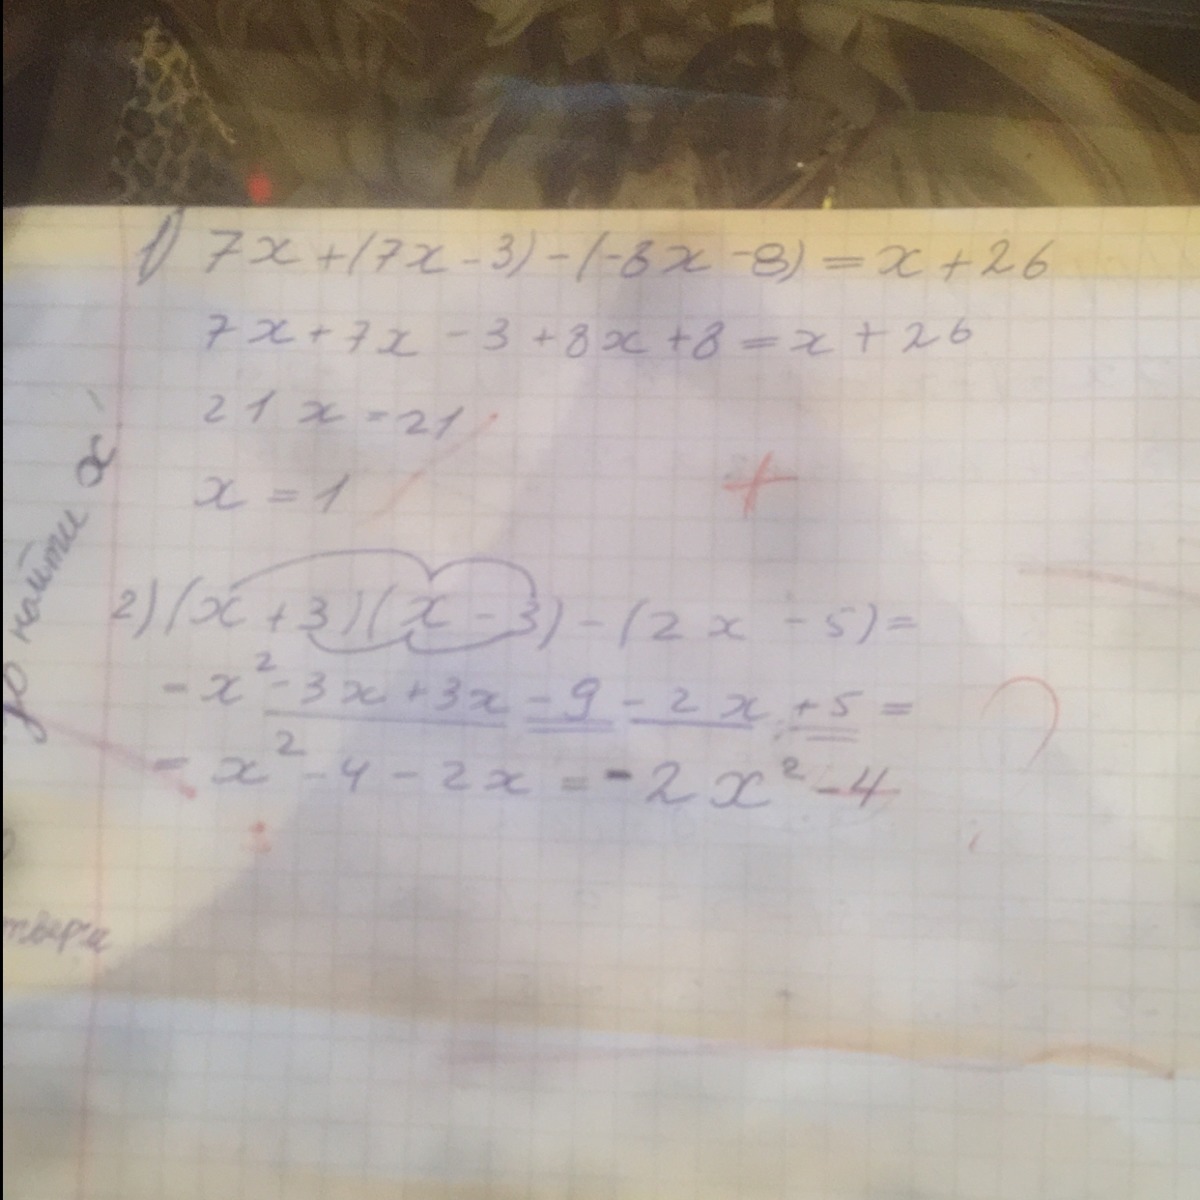 1) 7x + (7x - 3) - (-8x - 8) = x + 26
7x + 7x - 3 + 8x + 8 = x + 26
21x = 21
x = 1
найти x
2) (x + 3)(x - 3) - (2x - 5) =
- x² - 3x + 3x - 9 - 2x + 5 =
= x² - 4 - 2x = -2x² - 4